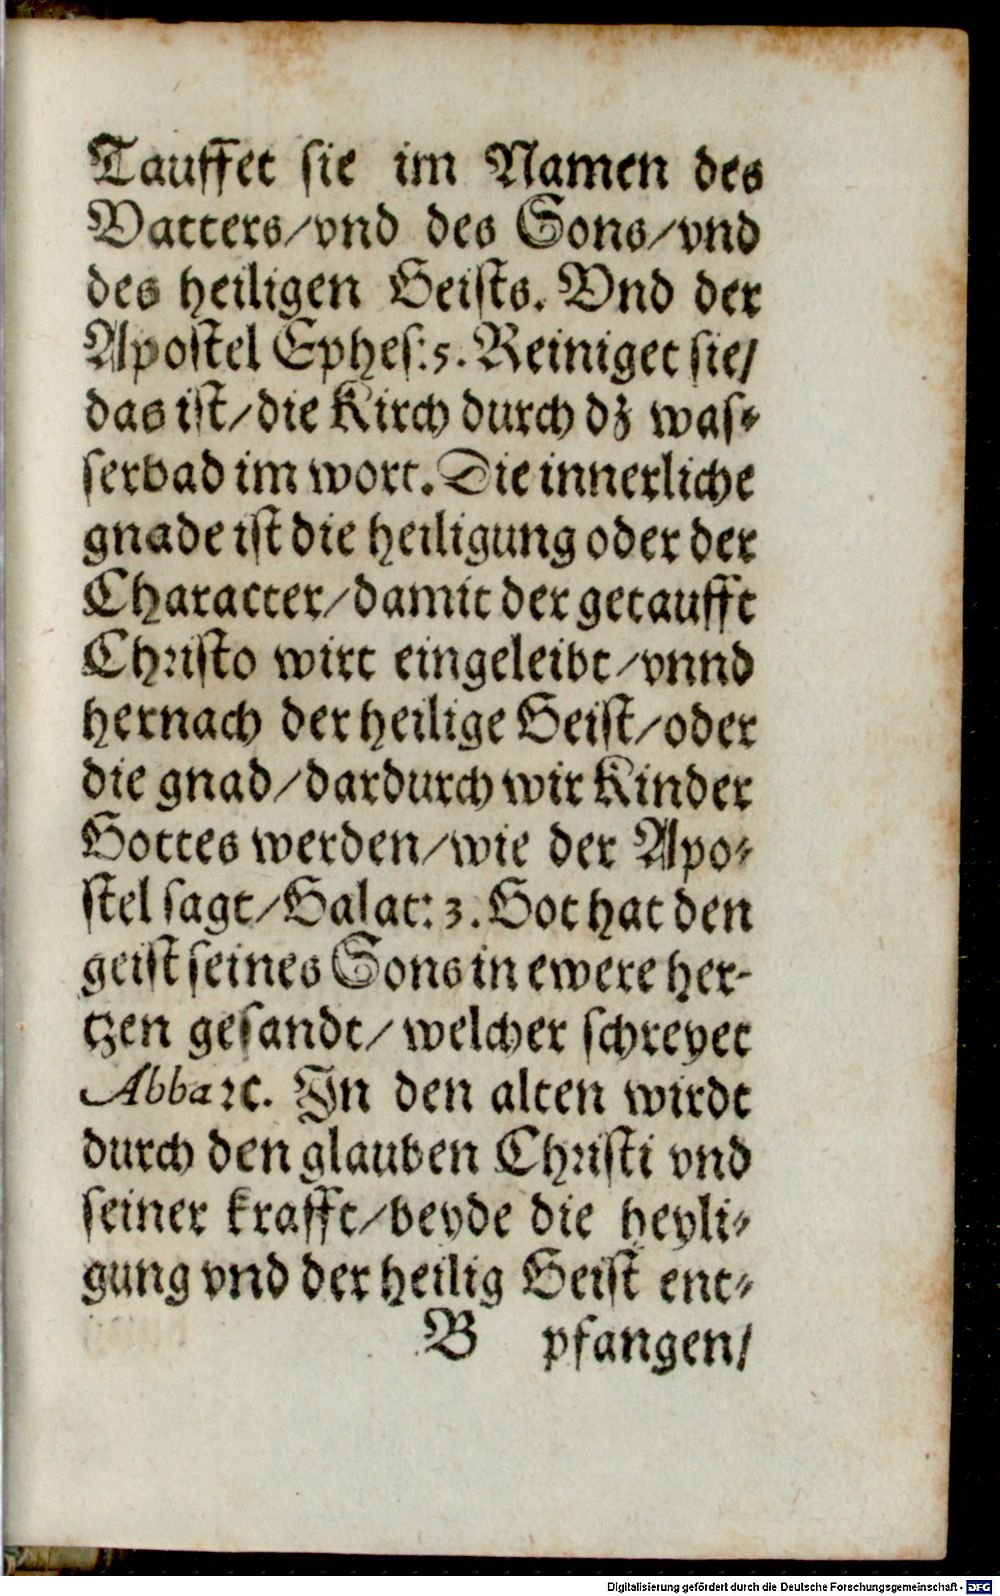 Tauffet sie im Namen des
Vatters/vnd des Sons/vnd
des heiligen Geists. Vnd der
Apostel Ephes: 5. Reiniget sie/
das ist/die Kirch durch dz was⸗
serbad im wort. Die innerliche
gnade ist die heiligung oder der
Character/damit der getaufft
Christo wirt eingeleibt/vnnd
hernach der heilige Geist/oder
die gnad/dardurch wir Kinder
Gottes werden/wie der Apo⸗
stel sagt/Galat: 3. Got hat den
geist seines Sons in ewere her-
tzen gesandt/welcher schreyet
Abba ꝛc. In den alten wirdt
durch den glauben Christi vnd
seiner krafft/beyde die heyli⸗
gung vnd der heilig Geist ent⸗
B pfangen/
Digitalisierung gefördert durch die Deutsche Forschungsgemeinschaft - DFG